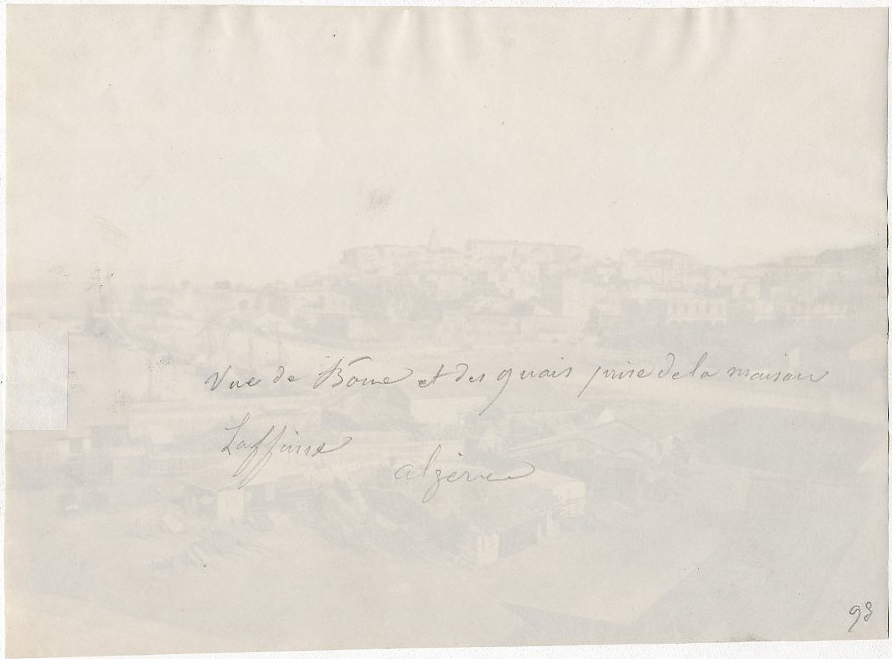 Vue de Bône et des quais prise de la maison
Laffine
algérie
98